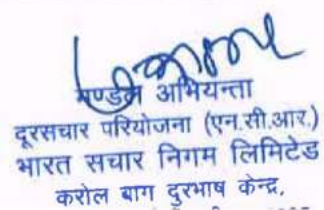 मण्डल अभियन्ता
दूरसंचार परियोजना (एन.सी.आर.)
भारत संचार निगम लिमिटेड
करोल बाग दुरभाष केन्द्र,